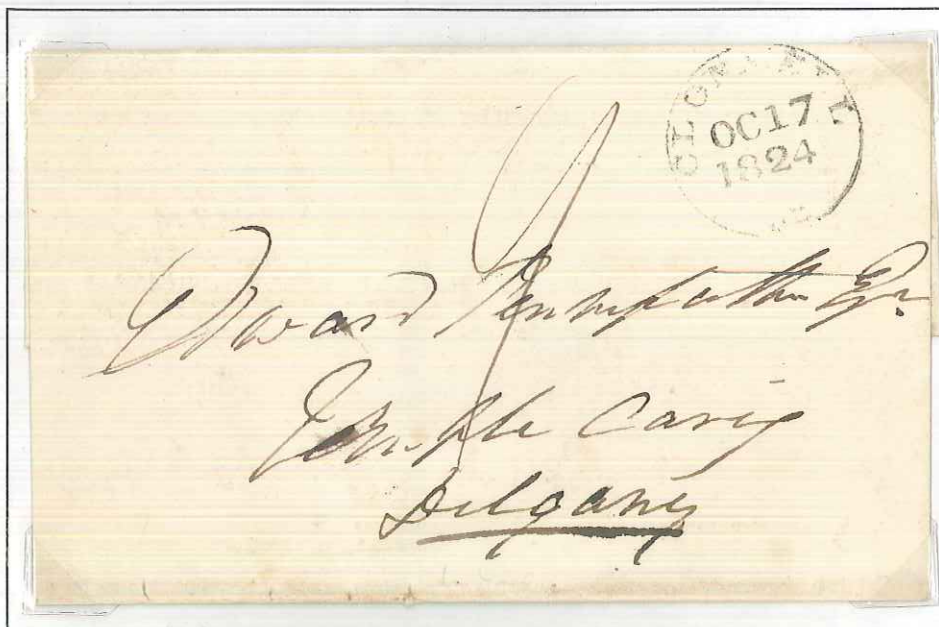 CLONMELL
OC 17
1824
9
Edward Pennefather Esqr
Temple Carig
Delgany